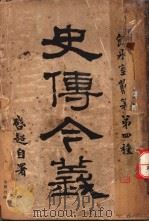 飲冰室叢著第四種
史傳今義
啟超自署